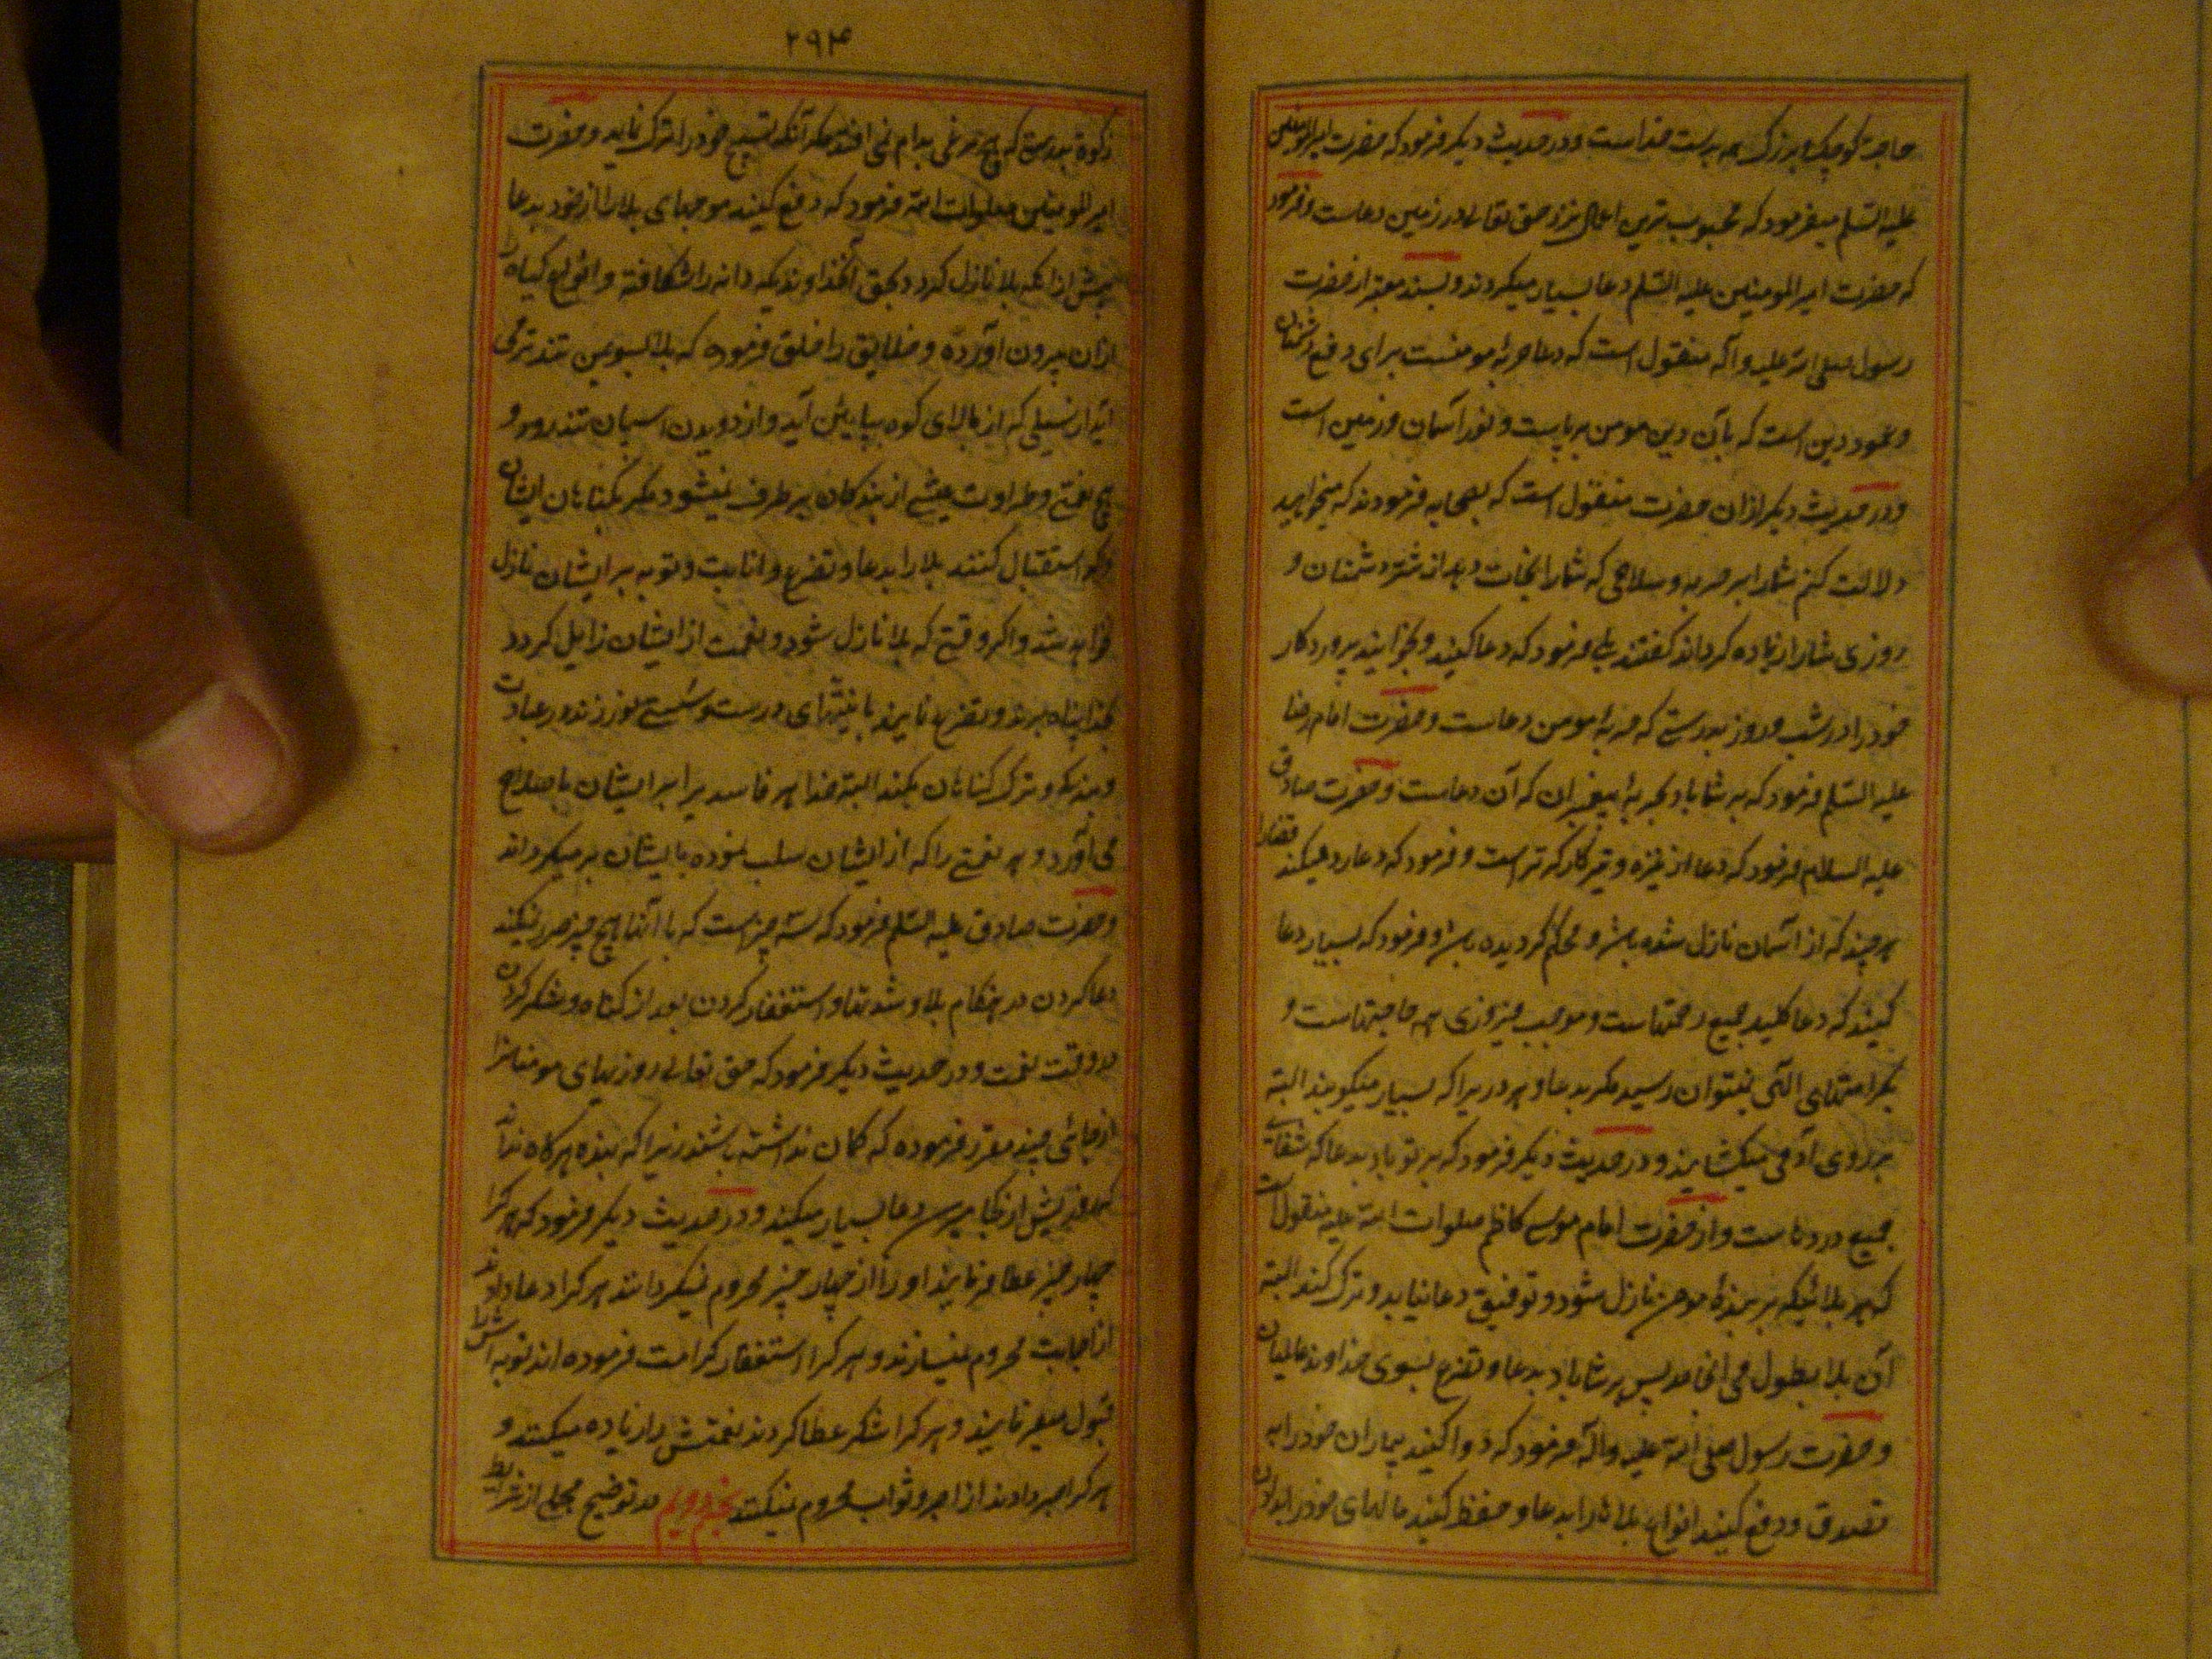 حاجت کوچک و بزرک همه بدست خداست و در حدیث دیکر فرمود که حضرت امیرالمومنین
علیه السّلم میفرمود که محبوب ترین اعمال نزد حق تعالی در زمین دعاست و فرمود
که حضرت امیر المومنین علیه السّلم دعا بسیار میکردند و بسند معتبر از حضرت
رسول صلی الله علیه و آله منقول است که دعا حربهٔ مومنست برای دفع دشمنان
و عمود دین است که بآن دین مومن برپاست و نور آسمان و زمین است
و در حدیث دیکر ازان حضرت منقول است که بصحابه فرمودند که میخواهید
دلالت کنم شما را بر حربه و سلاحی که شما را نجات دهد از شر دشمنان و
روزی شما را زیاده کرداند کفتند بلی فرمود که دعا کنید و بخوانید پروردکار
خود را در شب و روز بدرستی که حربهٔ مومن دعاست و حضرت امام رضا
علیه السّلم فرمود که بر شما باد بحربهٔ پیغمبران که آن دعاست و حضرت صادق
علیه السلام فرمود که دعا از نیزه و تیر کارکرتر است و فرمود که دعا رد میکند قضا را
هرچند که از آسمان نازل شده باشد و محکم کردیده باشد و فرمود که بسیار دعا
کنید که دعا کلید جمیع رحمتهاست و موجب فیروزی همه حاجتهاست و
بکرامتهای الهی نمیتوان رسید مکر بدعا و هر دریرا که بسیار میکوبند البته
بر روی آدمی میکشایند و در حدیث دیکر فرمود که بر تو باد بدعا که شفای
جمیع دردهاست و از حضرت امام موسی کاظم صلوات الله علیه منقول است
که هر بلائیکه بر بندهٔ مومن نازل شود و توفیق دعا نیابد و ترک کند البته
آن بلا بطول می انجامد پس بر شما باد بدعا و تضرع بسوی خداوند عالمیان
و حضرت رسول صلی الله علیه وآله فرمود که دوا کنید بیماران خود را به
تصدق و دفع کنید انواع بلاها را بدعا و حفظ کنید مالهای خود را بدادن
۲۹۴
زکوة بدرستی که هیچ مرغی بدام نمی افتد مکر آنکه تسبیح خود را ترک نماید و حضرت
امیر المومنین صلوات الله فرمود که دفع کنید موجهای بلا را از خود بدعا
پیش از انکه بلا نازل کردد بحق آنخداوندیکه دانه را شکافته و انواع کیاه را
ازان بیرون آورده و خلایق را خلق فرموده که بلا بسوی مومن تندتر می
آید از سیلی که از بالای کوه بپایین آید و از دویدن اسپان تندرو و
هیچ نعمتی و طراوت عیشی از بندکان برطرف نمیشود مکر بکناهان ایشان
و که استقبال کنند بلا را بدعا و تضرع و انابت و توبه بر ایشان نازل
نخواهد شد و اکر وقتی که بلا نازل شود و نعمت از ایشان زایل کردد
بخدا پناه برند و تضرع نمایند با نیتهای درست و سستی نورزند در عبادت
و بندکی و ترک کناهان بکنند البته خدا هر فاسدیرا برایشان باصلاح
می آورد و هر نعمتی را که از ایشان سلب نموده بایشان برمیکرداند
و حضرت صادق علیه السّلم فرمود که سه چیز است که با آنها هیچ چیز ضرر نمیکند
دعا کردن در هنکام بلا و شدتها و استغفار کردن بعد از کناه و شکر کردن
در وقت نعمت و در حدیث دیکر فرمود که حق تعالی روزیهای مومنانرا
از جائی چند مقرر فرموده که کمان نداشته باشند زیرا که بنده هرکاه نداند
که روزیش از کجا میرسد دعا بسیار میکند و در حدیث دیکر فرمود که هرکرا
چهار چیز عطا فرمایند او را از چهار چیز محروم نمیکردانند هرکرا دعا دادند
از اجابت محروم نمیسازند و هر کرا استغفار کرامت فرموده اند توبه اش را
قبول میفرمایند و هر کرا شکر عطا کردند نعمتش را زیاده میکنند و
هر کرا صبر دادند از اجر و ثواب محروم نمیکنند در توضیح مجملی از شرایط